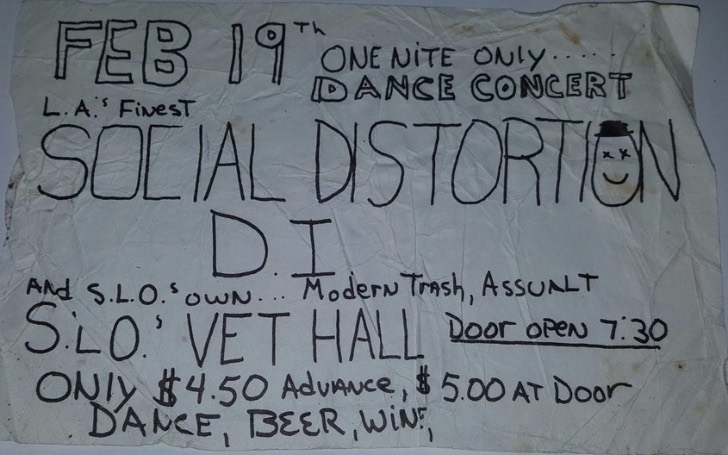 FEB 19Th ONE NITE ONLY......
DANCE CONCERT
L.A.'s FINEST
SOCIAL DISTORTION
D.I
AND S.L.O.'s OWN... Modern Trash, ASSUALT
S.LO.' VET HALL Door OPEN 7:30
ONLY $4.50 ADVANCE, $5.00 AT Door
DANCE, BEER, WINE,